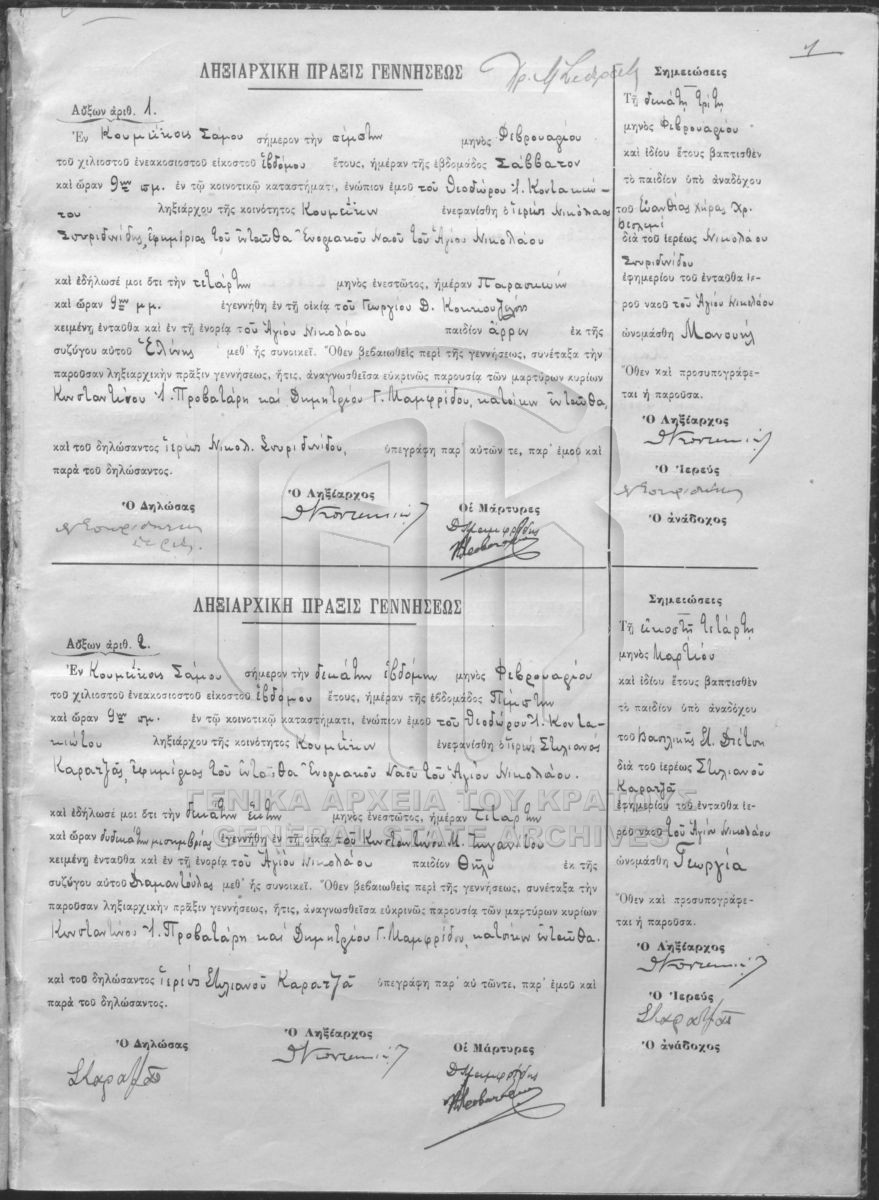 1
ΛΗΞΙΑΡΧΙΚΗ ΠΡΑΞΙΣ ΓΕΝΝΗΣΕΩΣ
Αὔξων ἀριθ. 1.
Ἐν Κουμεΐκοις Σάμου σήμερον τὴν πέμπτην μηνὸς Φεβρουαρίου
τοῦ χιλιοστοῦ ἐνεακοσιοστοῦ εἰκοστοῦ ἑβδόμου ἔτους, ἡμέραν τῆς ἑβδομάδος Σάββατον
καὶ ὥραν 9ην πμ. ἐν τῷ κοινοτικῷ καταστήματι, ἐνώπιον ἐμοῦ τοῦ Θεοδώρου Ἰ. Κοντακιώ-
του ληξιάρχου τῆς κοινότητος Κουμεΐκων ἐνεφανίσθη ὁ ἱερεὺς Νικόλαος
Σπυριδωνίδης, ἐφημέριος τοῦ ἐνταῦθα Ἐνοριακοῦ Ναοῦ τοῦ Ἁγίου Νικολάου
καὶ ἐδήλωσέ μοι ὅτι τὴν τετάρτην μηνὸς ἐνεστῶτος, ἡμέραν Παρασκευὴν
καὶ ὥραν 9ην μμ. ἐγεννήθη ἐν τῇ οἰκίᾳ τοῦ Γεωργίου Δ.
κειμένῃ ἐνταῦθα καὶ ἐν τῇ ἐνορίᾳ τοῦ Ἁγίου Νικολάου παιδίον ἄρρεν ἐκ τῆς
συζύγου αὐτοῦ Ἑλένης μεθ᾽ ἧς συνοικεῖ. Ὅθεν βεβαιωθεὶς περὶ τῆς γεννήσεως, συνέταξα τὴν
παροῦσαν ληξιαρχικὴν πρᾶξιν γεννήσεως, ἥτις, ἀναγνωσθεῖσα εὐκρινῶς παρουσίᾳ τῶν μαρτύρων κυρίων
Κωνσταντίνου Ἰ. Προβατάρη καὶ Δημητρίου Γ. Μαμφρέδου, κατοίκων ἐνταῦθα,
καὶ τοῦ δηλώσαντος ἱερέως Νικολ. Σπυριδωνίδου, ὑπεγράφη παρ᾽ αὐτῶν τε, παρ᾽ ἐμοῦ καὶ
παρὰ τοῦ δηλώσαντος.
Ὁ Δηλώσας Ὁ Ληξίαρχος Οἱ Μάρτυρες
Σημειώσεις
Τῇ δεκάτῃ τρίτῃ
μηνὸς Φεβρουαρίου
καὶ ἰδίου ἔτους βαπτισθὲν
τὸ παιδίον ὑπὸ ἀναδόχου
τοῦ Εὐανθίας χήρας Χρ.
διὰ τοῦ ἱερέως Νικολάου
Σπυριδωνίδου
ἐφημερίου τοῦ ἐνταῦθα ἱε-
ροῦ ναοῦ τοῦ Ἁγίου Νικολάου
ὠνομάσθη Μανουὴλ
Ὅθεν καὶ προσυπογράφε-
ται ἡ παροῦσα.
Ὁ Ληξίαρχος
Ὁ Ἱερεὺς
Ὁ ἀνάδοχος
ΛΗΞΙΑΡΧΙΚΗ ΠΡΑΞΙΣ ΓΕΝΝΗΣΕΩΣ
Αὔξων ἀριθ. 2.
Ἐν Κουμεΐκοις Σάμου σήμερον τὴν δεκάτην ἑβδόμην μηνὸς Φεβρουαρίου
τοῦ χιλιοστοῦ ἐνεακοσιοστοῦ εἰκοστοῦ ἑβδόμου ἔτους, ἡμέραν τῆς ἑβδομάδος Πέμπτην
καὶ ὥραν 9ην πμ. ἐν τῷ κοινοτικῷ καταστήματι, ἐνώπιον ἐμοῦ τοῦ Θεοδώρου Ἰ. Κοντα-
κιώτου ληξιάρχου τῆς κοινότητος Κουμεΐκων ἐνεφανίσθη ὁ ἱερεὺς Στυλιανὸς
Καρατζᾶς, ἐφημέριος τοῦ ἐνταῦθα Ἐνοριακοῦ Ναοῦ τοῦ Ἁγίου Νικολάου.
ΓΕΝΙΚΑ ΑΡΧΕΙΑ ΤΟΥ ΚΡΑΤΟΥΣ
GENERAL STATE ARCHIVES
καὶ ἐδήλωσέ μοι ὅτι τὴν δεκάτην ἕκτην μηνὸς ἐνεστῶτος, ἡμέραν Τετάρτην
καὶ ὥραν δωδεκάτην μεσημβρίας ἐγεννήθη ἐν τῇ οἰκίᾳ τοῦ Κωνσταντίνου Μ.
κειμένῃ ἐνταῦθα καὶ ἐν τῇ ἐνορίᾳ τοῦ Ἁγίου Νικολάου παιδίον Θῆλυ ἐκ τῆς
συζύγου αὐτοῦ Διαμαντούλας μεθ᾽ ἧς συνοικεῖ. Ὅθεν βεβαιωθεὶς περὶ τῆς γεννήσεως, συνέταξα τὴν
παροῦσαν ληξιαρχικὴν πρᾶξιν γεννήσεως, ἥτις, ἀναγνωσθεῖσα εὐκρινῶς παρουσίᾳ τῶν μαρτύρων κυρίων
Κωνσταντίνου Ἰ. Προβατάρη καὶ Δημητρίου Γ. Μαμφρέδου, κατοίκων ἐνταῦθα.
καὶ τοῦ δηλώσαντος ἱερέως Στυλιανοῦ Καρατζᾶ ὑπεγράφη παρ᾽ αὐ τῶντε, παρ᾽ ἐμοῦ καὶ
παρὰ τοῦ δηλώσαντος.
Ὁ Δηλώσας Ὁ Ληξίαρχος Οἱ Μάρτυρες
Σημειώσεις
Τῇ εἰκοστῇ τετάρτῃ
μηνὸς Μαρτίου
καὶ ἰδίου ἔτους βαπτισθὲν
τὸ παιδίον ὑπὸ ἀναδόχου
τοῦ Βασιλικῆς
διὰ τοῦ ἱερέως Στυλιανοῦ
Καρατζᾶ
ἐφημερίου τοῦ ἐνταῦθα ἱε-
ρέο ναοῦ τοῦ Ἁγίου Νικολάου
ὠνομάσθη Γεωργία
Ὅθεν καὶ προσυπογράφε-
ται ἡ παροῦσα.
Ὁ Ληξίαρχος
Ὁ Ἱερεὺς
Ὁ ἀνάδοχος